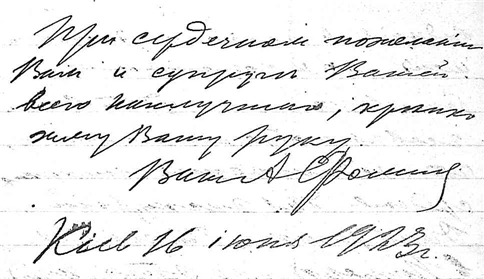 При сердечном пожелании
Вам и супруге Вашей
всего наилучшего, крепко
жму Вашу руку.
Ваш А Фомин
Киев 16 июня 1923 г.